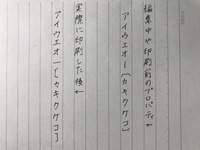 編集中や印刷前のプロパティ←
アイウエオー〔カキクケコ〕
実際に印刷した帳←
アイウエオー[カキクケコ]